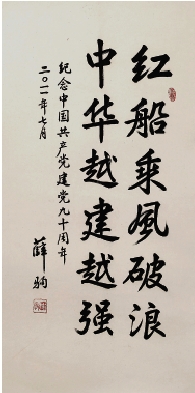 红船乘风破浪
中华越建越强
纪念中国共产党建党九十周年
二〇一一年七月
薛驹